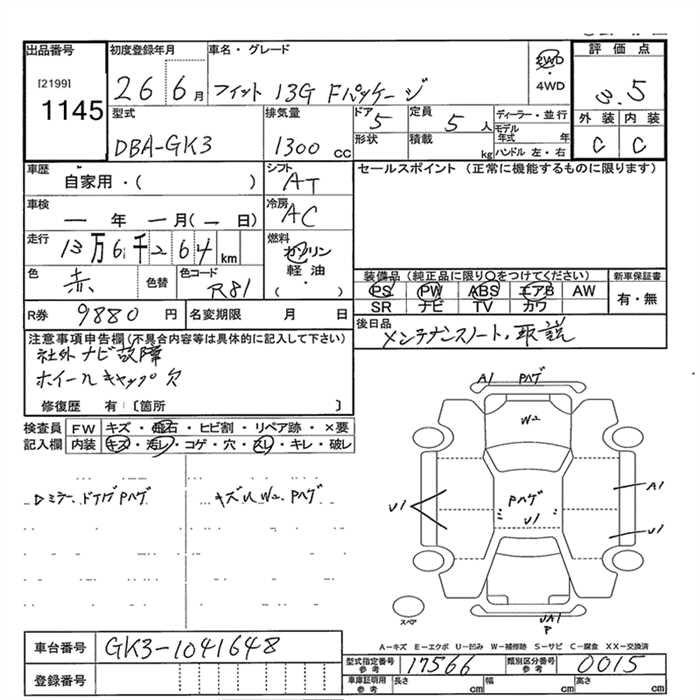 出品番号
[2199]
1145
初度登録年月
26 6月
車名・グレード
フィット 13G Fパッケージ
2WD
・
4WD
評価点
3.5
外装 内装
C C
型式
DBA-GK3
排気量
1300 cc
ドア
5
形状
定員
5 人
積載
kg
ディーラー・並行
モデル年式 年
ハンドル 左・右
車歴
自家用・( )
シフト
AT
セールスポイント (正常に機能するものに限ります)
車検
― 年 ― 月(― 日)
冷房
AC
走行
13万6千264 km
燃料
ガソリン
軽油・
( )
色
赤
色替
色コード
R81
装備品(純正品に限り○をつけてください)
PS PW ABS エアB AW
SR ナビ TV カワ
新車保証書
有・無
R券 9880 円
名変期限 月 日
後日品
メンテナンスノート・取説
注意事項申告欄(不具合内容等は具体的に記入して下さい)
社外ナビ故障
ホイールキャップ欠
修復歴 有 〔箇所 〕
検査員記入欄
FW キズ・飛石・ヒビ割・リペア跡・×要
内装 キズ・汚レ・コゲ・穴・スレ・キレ・破レ
ドミラー、ドイグPハゲ
キズ W2、Pハゲ
A1 Pハゲ
W2
Pハゲ
U1
U1
A1
U1
UA1
P
スペア
A−キズ E−エクボ U−凹み W−補修跡 S−サビ C−腐食 XX−交換済
車台番号 GK3-1041648
登録番号
型式指定番号 参考 17566
類別区分番号 参考 0015
車庫証明用 参考 長さ cm 幅 cm 高さ cm